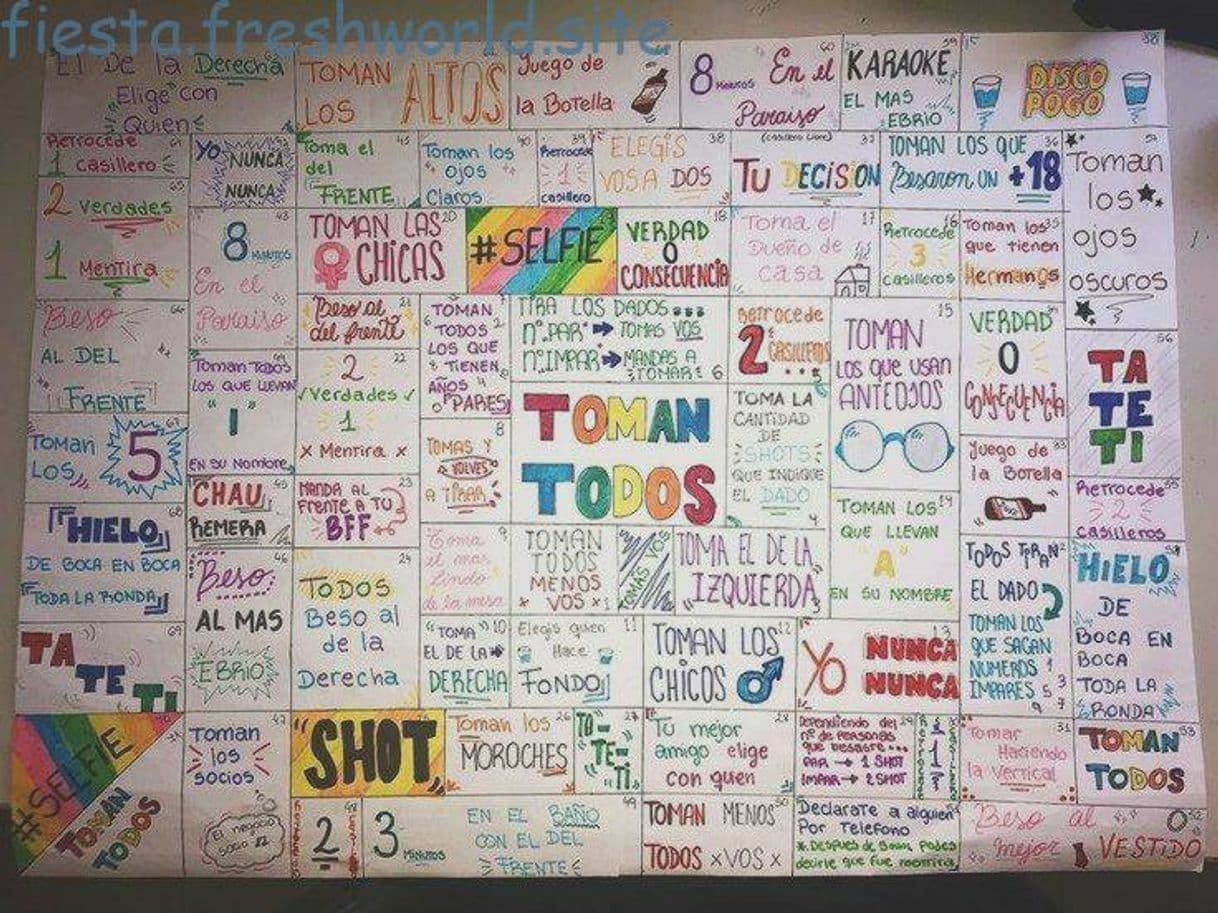 fiesta.freshworld.site
El De la Derecha
Elige con
Quien
TOMAN
LOS ALTOS
Juego de
la Botella
8 MINUTOS En el
Paraiso
60
KARAOKE
EL MAS
EBRIO
59
DISCO
POGO
58
Retrocede
1 casillero
Yo NUNCA
NUNCA
Toma el
del
FRENTE
Toman los
ojos
Claros
40
Retrocede
1
casillero
39
ELEGIS
VOS A DOS
38
(casillero libre)
TU DECISION
37
TOMAN LOS QUE
Besaron UN +18
36
Toman
los
ojos
oscuros
57
2 verdades
1 Mentira
65
8 MINUTOS
En el
Paraiso
43
TOMAN LAS
CHICAS
20
#SELFIE
VERDAD
O
CONSECUENCIA
18
Toma el
Dueño de
casa
17
Retrocede
3
casilleros
16
Toman los
que tienen
Hermanos
35
Beso
AL DEL
FRENTE
66
Beso al
del frente
21
TOMAN
TODOS
LOS QUE
TIENEN
AÑOS
PARES
TIRA LOS DADOS...
nº PAR → TOMAS VOS
nº IMPAR → MANDAS A
TOMAR
6
Retrocede
2 CASILLEROS
TOMAN
LOS QUE USAN
ANTEOJOS
15
VERDAD
O
CONSECUENCIA
TA
TE
TI
56
Toman TODOS
LOS QUE LLEVAN
"I"
EN SU Nombre
2
Verdades
1
x Mentira x
22
TOMAN
TODOS
TOMA LA
CANTIDAD
DE
SHOTS
QUE INDIQUE
EL DADO
4
Toman
LOS 5
67
TOMAS Y
VOLVES
A TIRAR
8
Juego de
la Botella
33
Retrocede
2
casilleros
55
CHAU
REMERA
45
MANDA AL
FRENTE A TU
BFF
23
TOMAN LOS
QUE LLEVAN
"A"
EN SU NOMBRE
14
HIELO
DE BOCA EN BOCA
TODA LA RONDA
68
Beso
AL MAS
EBRIO
46
TODOS
Beso al
de la
Derecha
24
Toma
el mas
lindo
de la mesa
9
TOMAN
TODOS
MENOS
VOS
1
TOMAS VOS
TOMA EL DE LA
IZQUIERDA
TODOS TIRAN
EL DADO
TOMAN LOS
QUE SACAN
NUMEROS 1
IMPARES 5 3
9 7
HIELO
DE
BOCA EN
BOCA
TODA LA
RONDA
54
TA
TE
TI
69
"TOMA"
EL DE LA
DERECHA
10
Elegis quien
Hace
FONDO
11
TOMAN LOS
CHICOS
12
YO NUNCA
NUNCA
13
#SELFIE
70
TOMAN
TODOS
71
Toman
los
socios
47
El negocio
socio #2
"SHOT"
Toman los
MOROCHES
26
TA-
TE-
TI
27
Tu mejor
amigo elige
con quien
28
Dependiendo del
nº de personas
que besaste...
PAR → 1 SHOT
IMPAR → 2 SHOT
29
Tomar
Haciendo
la Vertical
31
TOMAN
TODOS
53
2
48
3 MINUTOS
EN EL BAÑO
CON EL DEL
FRENTE
49
TOMAN MENOS
TODOS x VOS x
50
Declarate a alguien
Por Telefono
* Despues de 5min podes
decirle que fue mentira
Beso al
mejor VESTIDO
52